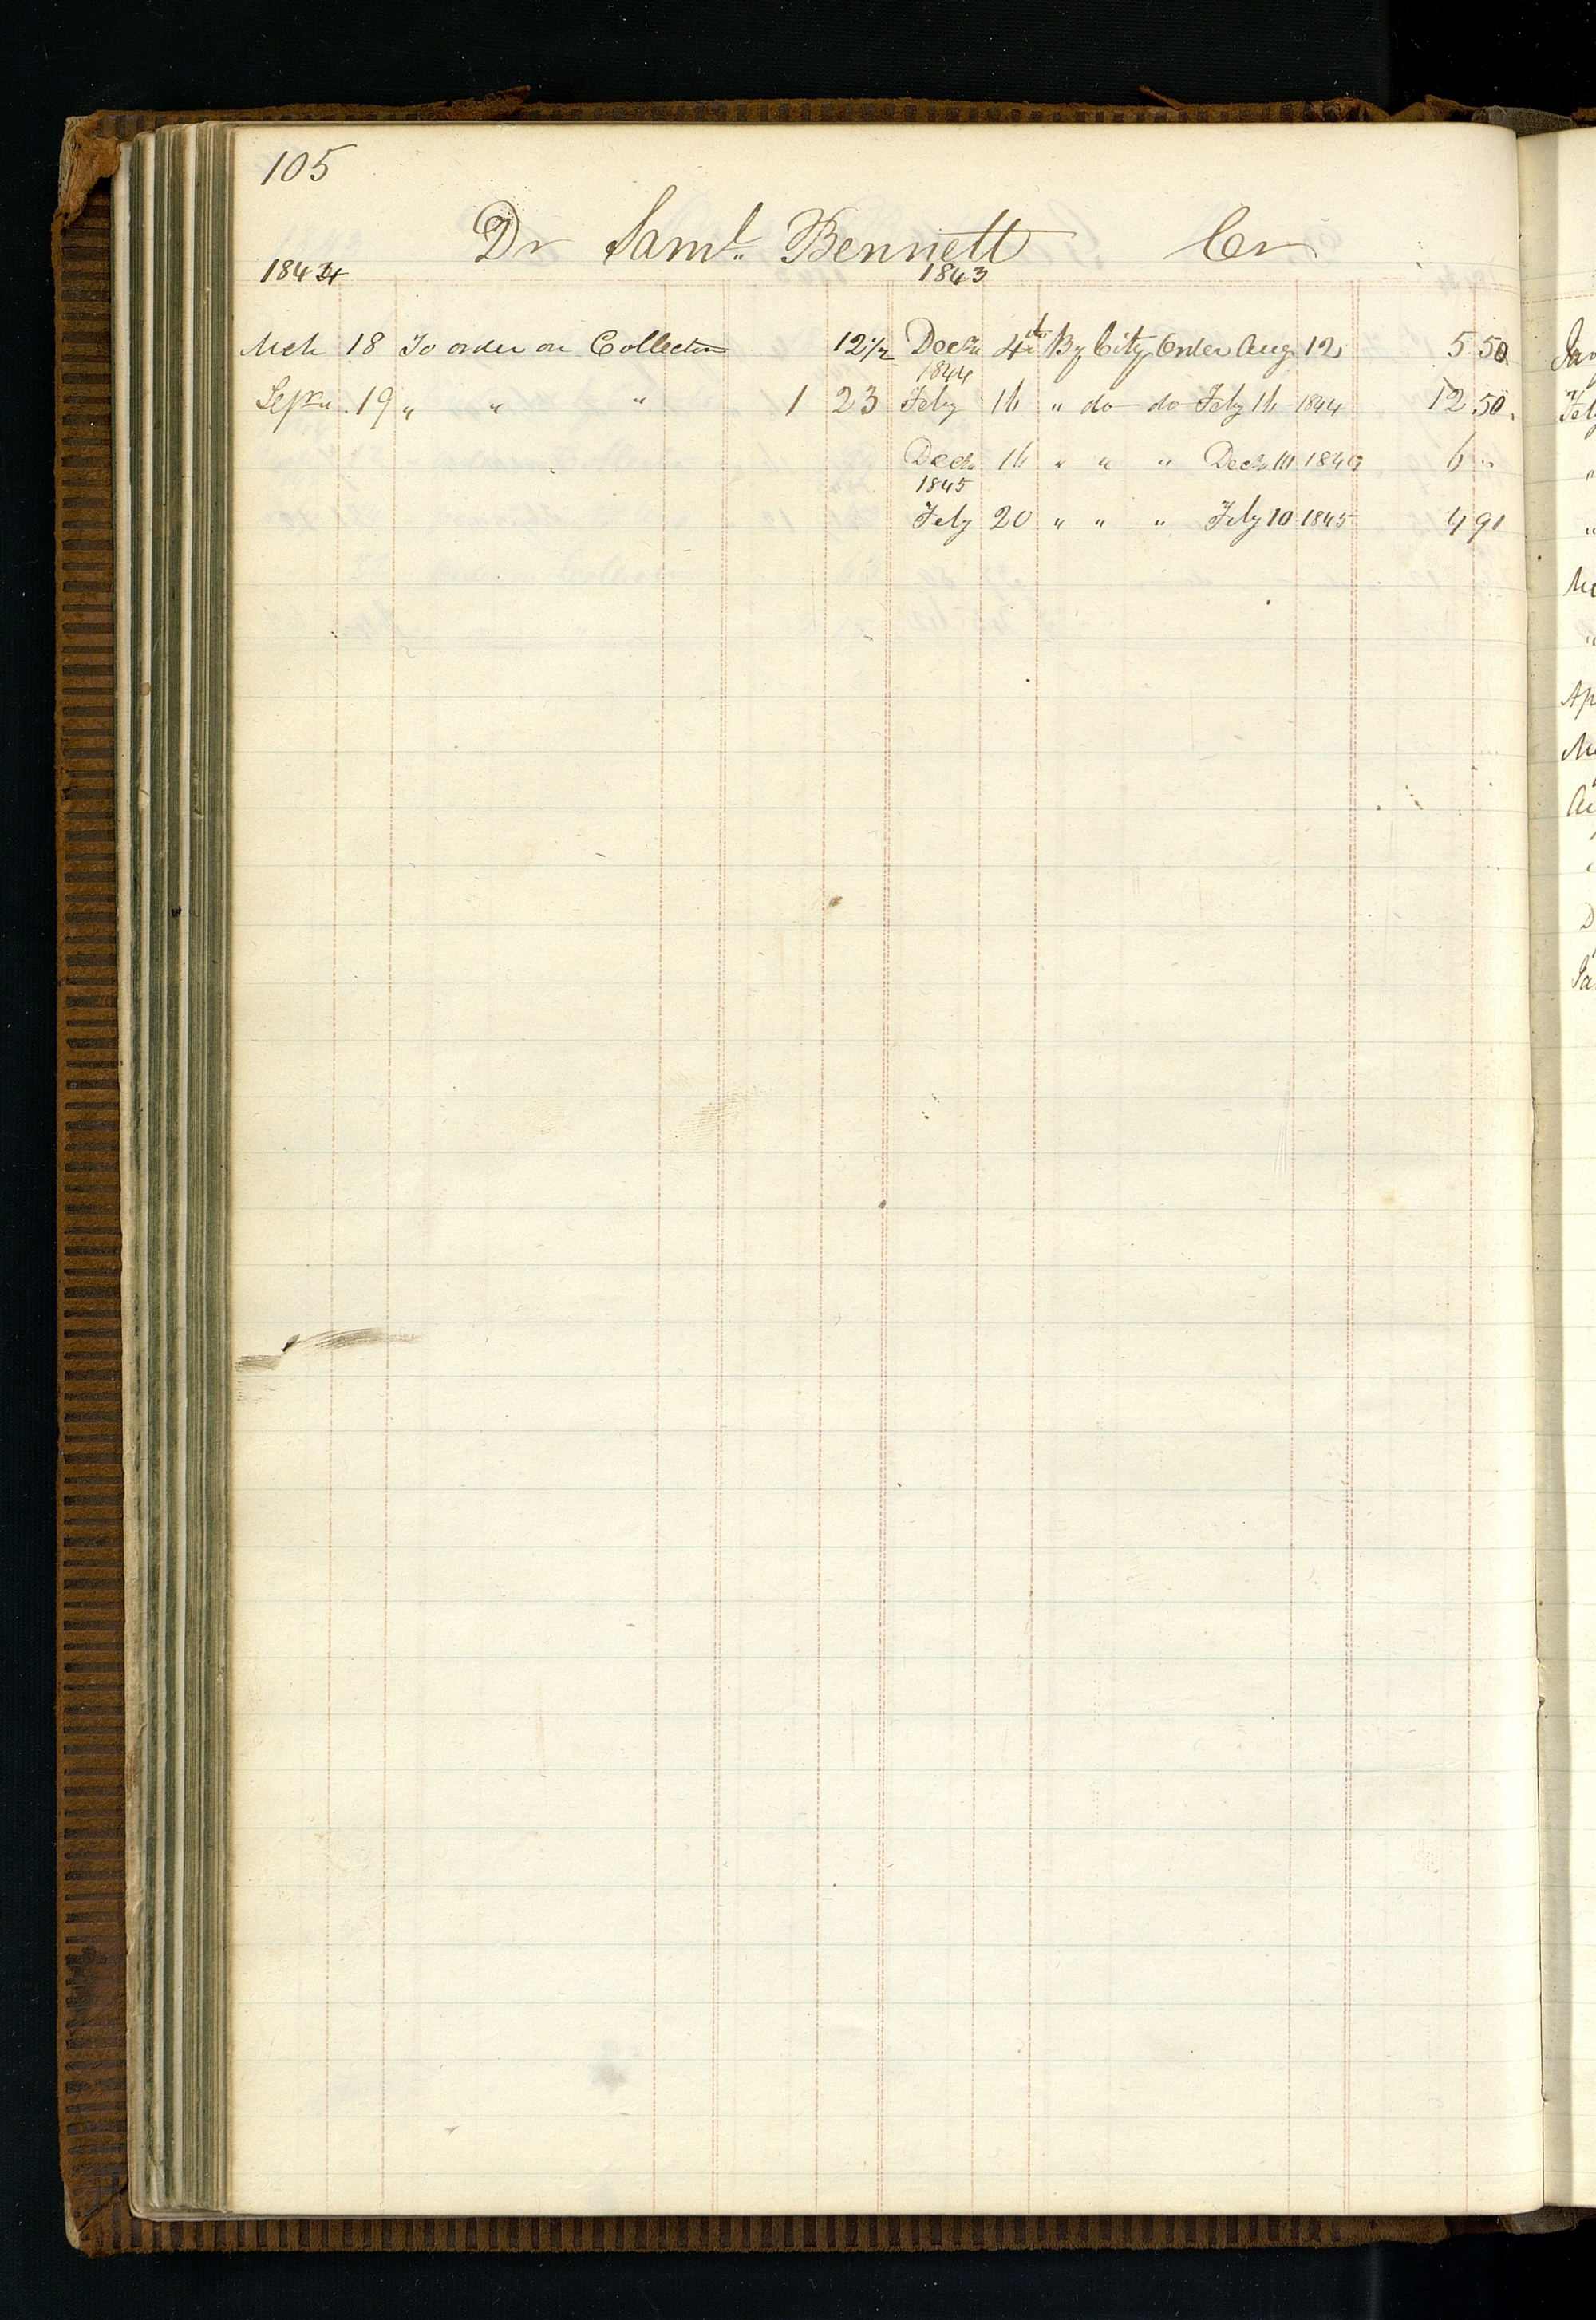 105
Dr Saml. Bennett Cr
1844 1843
Mch 18 To order on Collector 12 1/2 Decr 4th By City Order Aug 12 5 50
1844
Sepr 19 " " " 1 23 Feby 16 " do do Feby 16 1844 12 50
Decr 16 " " " Decr 10 1844 6 "
1845
Feby 20 " " " Feby 10 1845 4 91